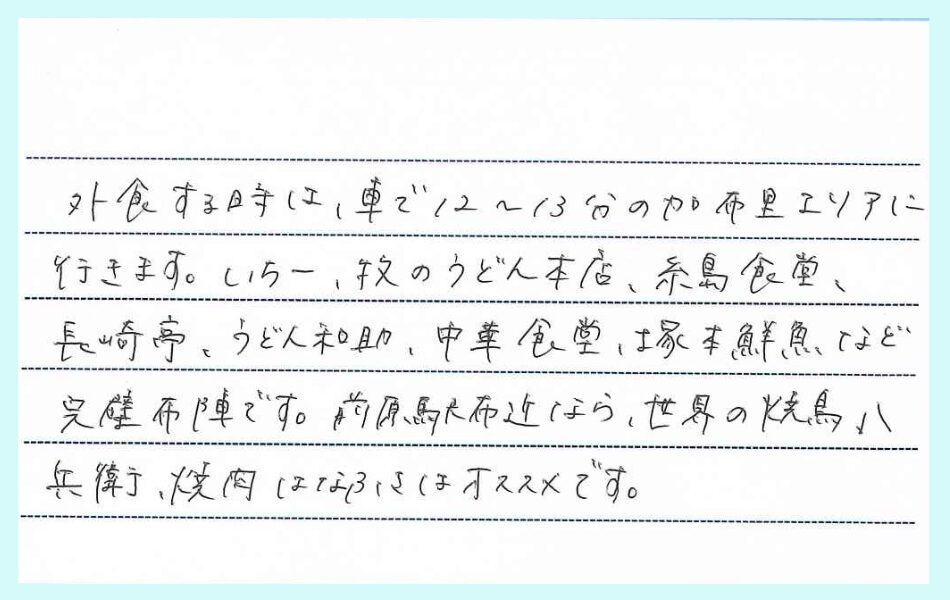 外食する時は、車で12～13分の加布里エリアに
行きます。いち一、牧のうどん本店、糸島食堂、
長崎亭、うどん和助、中華食堂、塚本鮮魚、など
完璧布陣です。前原駅布近なら、世界の焼鳥、八
兵衛、焼肉はなぶさはオススメです。